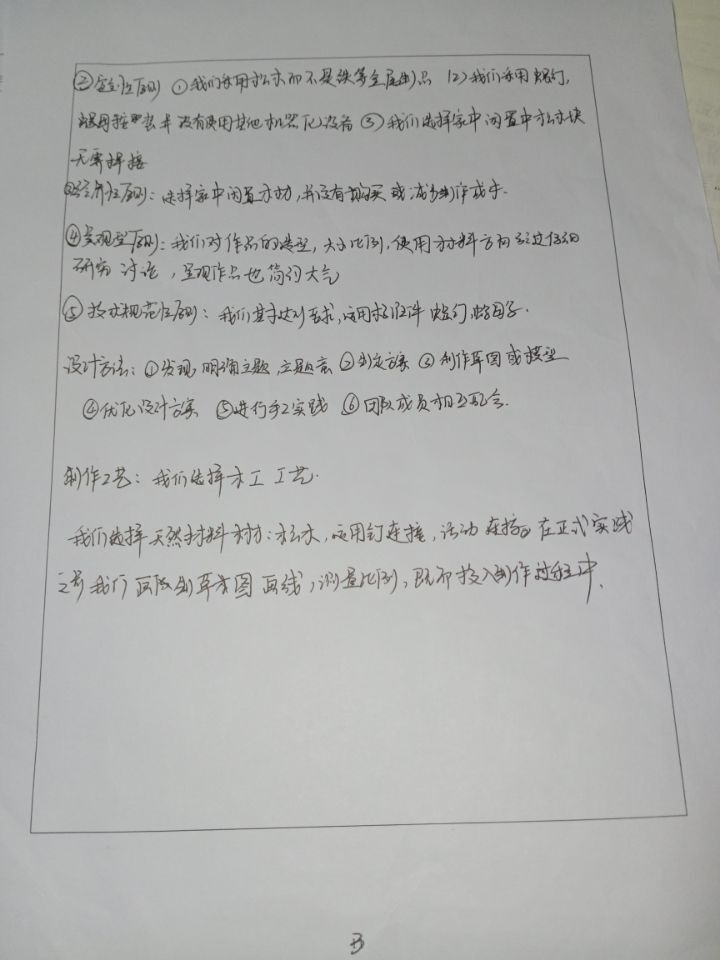 ②安全性原则 ①我们采用松木而不是铁等金属制品 (2)我们采用螺钉,
没有使用其他机器化设备 ③我们选择家中闲置中松木块
无需焊接
③经济性原则：选择家中闲置木材，并没有购买 或 减少制作成本.
④美观型原则：我们对作品的造型，大小比例，使用材料方向经过仔细
研究讨论，呈现作品也简约大气
⑤技术规范性原则：我们基本达到要求，应用标准件 螺钉,
设计方法：①发现,明确主题, ②制定方案 ③制作草图或模型
④优化设计方案 ⑤进行手工实践 ⑥团队成员相互配合.
制作工艺：我们选择木工工艺.
我们选择天然材料木材：松木，应用钉连接，活动连接。在正式实践
之前我们 草图 画线，测量比例，既而投入制作过程中.
3